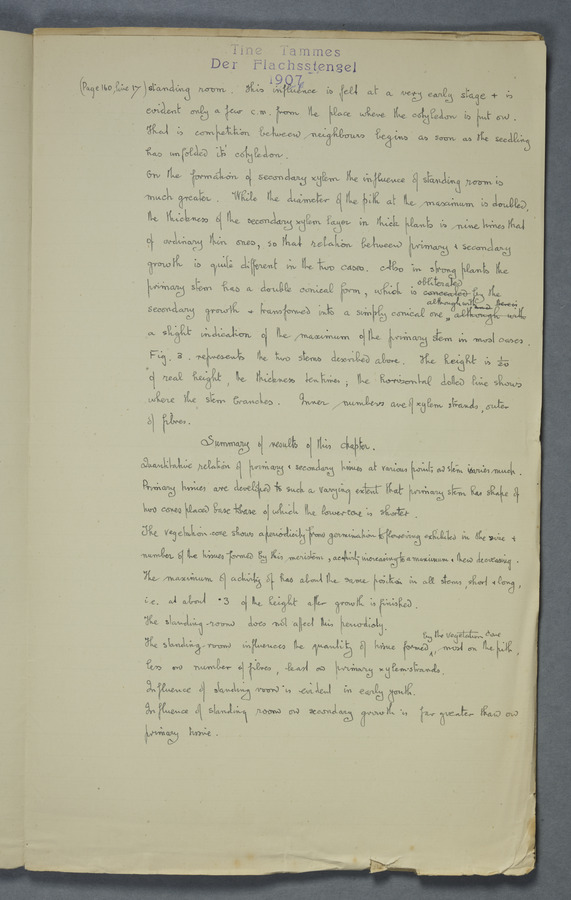 Tine Tammes
Der Flachsstengel
1907
(Page 160, line 17) standing room. This influence is felt at a very early stage + is
evident only a few c.m. from the place where the cotyledon is put on.
That is competition between neighbours begins as soon as the seedling
has unfolded its cotyledon.
On the formation of secondary xylem the influence of standing room is
much greater. While the diameter of the pith at the maximum is doubled,
the thickness of the secondary xylem layer in thick plants is nine times that
of ordinary thin ones, so that relation between primary & secondary
growth is quite different in the two cases. Also in strong plants the
obliterated
primary stem has a double conical form, which is concealed by the
although with
secondary growth & transformed into a simply conical one, although with
a slight indication of the maximum of the primary stem in most cases.
Fig. 3. represents the two stems described above. The height is 1/20
of real height, the thickness ten times, the horizontal dotted line shows
where the stem branches. Inner numbers are of xylem strands, outer
of fibres.
Summary of results of this chapter.
Quantitative relation of primary & secondary tissues at various points on stem varies much.
Primary tissues are developed to such a varying extent that primary stem has shape of
two cones placed base to base of which the lower cone is shorter.
The vegetation-cone shows a periodicity from germination to flowering exhibited in the size +
number of the tissues formed by this meristem, activity increasing to a maximum & then decreasing.
The maximum of activity of has about the same position in all stems, short & long,
i.e. at about .3 of the height after growth is finished.
The standing-room does not affect this periodicity.
by the vegetation cone
The standing-room influences the quantity of tissue formed, most on the pith,
less on number of fibres, least on primary xylem strands.
Influence of standing room is evident in early youth.
Influence of standing room on secondary growth is far greater than on
primary tissue.